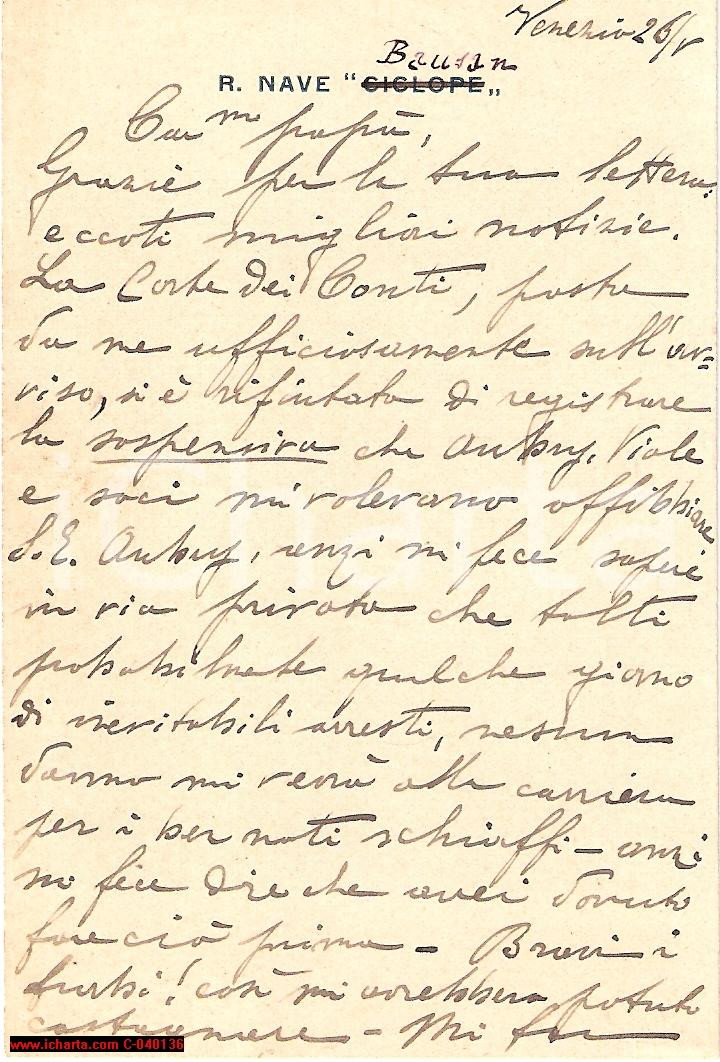 Venezia 26/V
Bausan
R. NAVE "CICLOPE„
Car.mo papà,
Grazie per la tua lettera:
eccoti migliori notizie.
La Corte dei Conti, posta
da me ufficiosamente sull'av=
viso, si è rifiutata di registrare
la sospensiva che Aubry, Viale
e soci mi volevano affibbiare
S.E. Aubry, anzi mi fece sapere
in via privata che tolti
probabilmente qualche giorno
di inevitabili arresti, nessun
danno mi verrà alla carriera
per i ben noti schiaffi - anzi
mi fece dire che avrei dovuto
fare ciò prima - Bravi i
furbi! così mi avrebbero potuto
- Mi
www.icharta.com C-040136
icharta